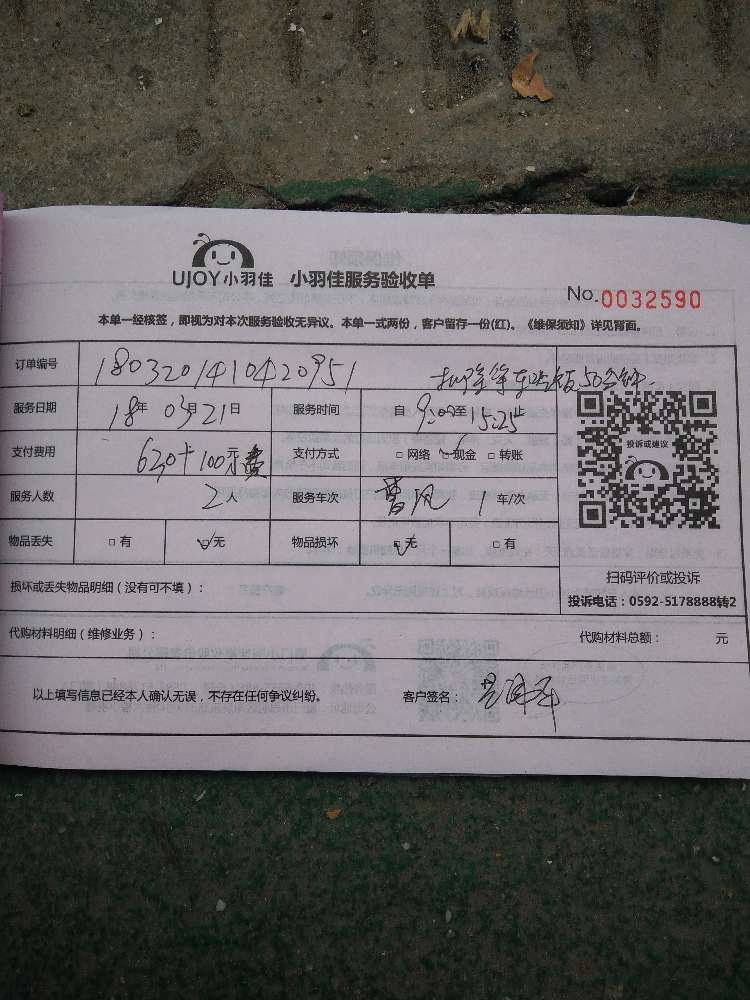 UJOY小羽佳 小羽佳服务验收单
No.0032590
本单一经核签，即视为对本次服务验收无异议。本单一式两份，客户留存一份(红)。《维保须知》详见背面。
订单编号 1803201410420951
服务日期 18年 03月21日 服务时间 自 9:00至15:25止
支付费用 630+100元 支付方式 □ 网络 □ 现金 □ 转账
投诉或建议
服务人数 2人 服务车次 1车/次
物品丢失 □ 有 □ 无 物品损坏 □ 无 □ 有
扫码评价或投诉
损坏或丢失物品明细（没有可不填）：
投诉电话：0592-5178888转2
代购材料明细（维修业务）： 代购材料总额： 元
以上填写信息已经本人确认无误，不存在任何争议纠纷。 客户签名：